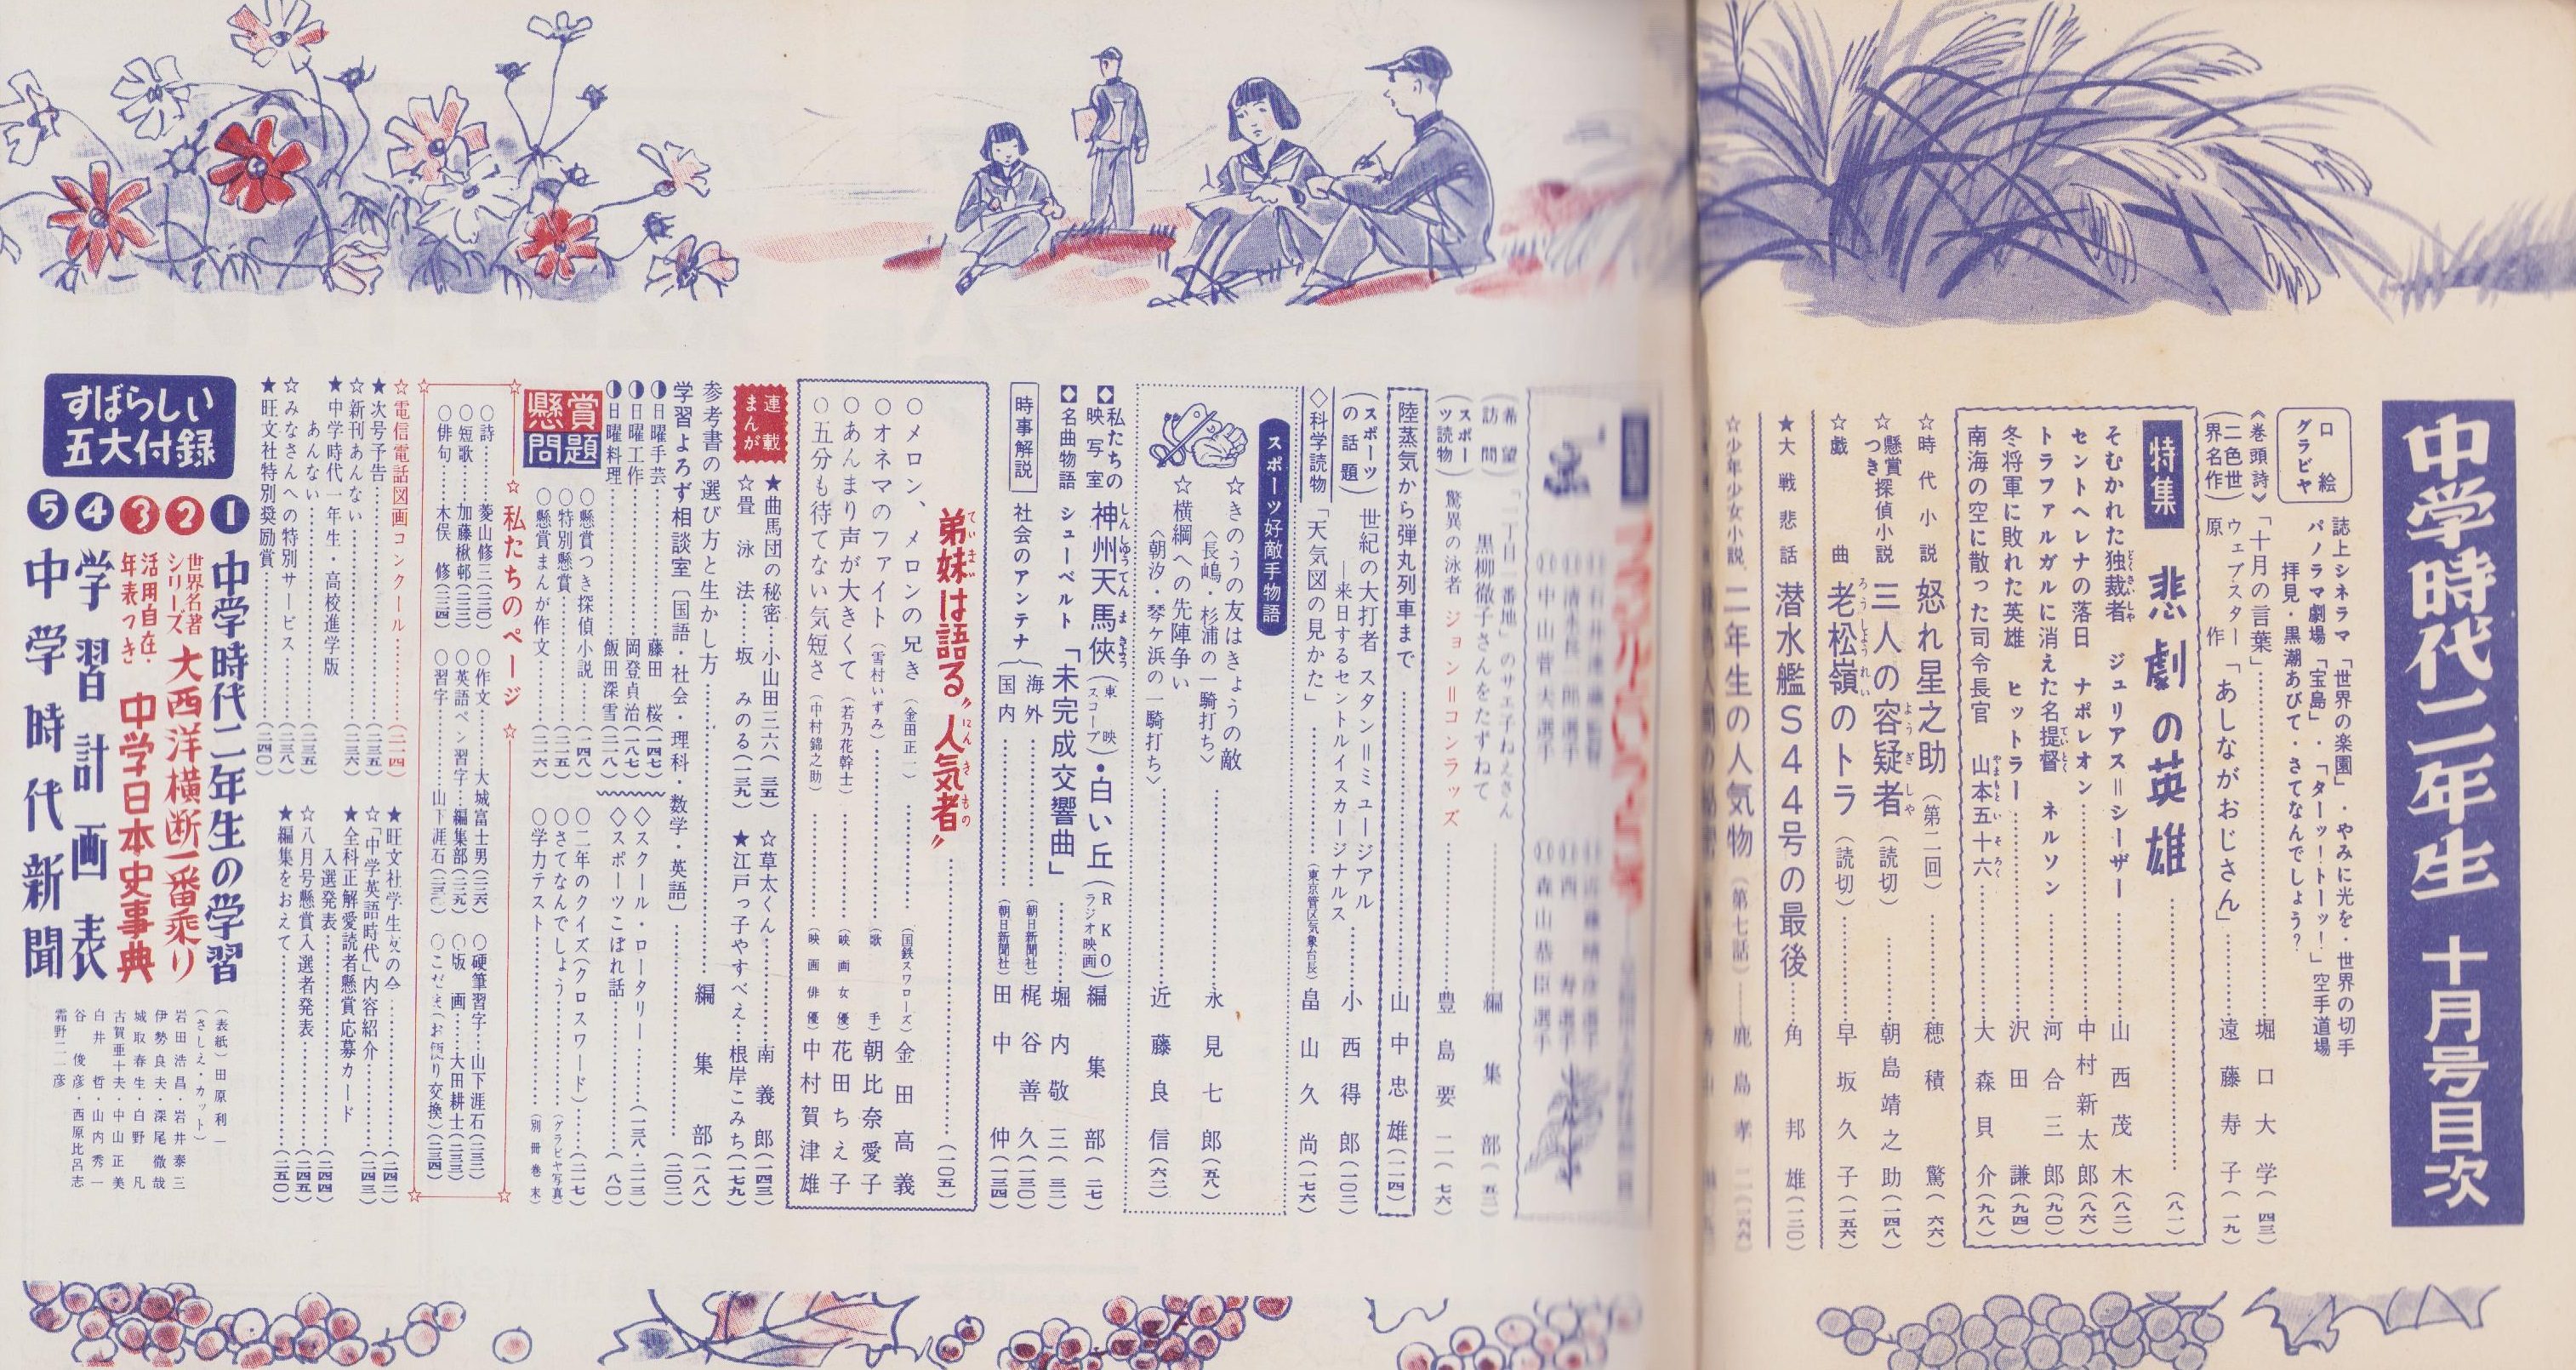 中学時代二年生 十月号目次
口絵
グラビヤ
誌上シネラマ「世界の楽園」・やみに光を・世界の切手
パノラマ劇場「宝島」・「ターッ!トーッ!」空手道場
拝見・黒潮あびて・さてなんでしょう?
《巻頭詩》「十月の言葉」 堀口大学(四三)
(二色世界名作) ウェブスター原作「あしながおじさん」 遠藤寿子(一九)
特集 悲劇の英雄 (八一)
そむかれた独裁者 ジュリアス=シーザー 山西茂木(八二)
セントヘレナの落日 ナポレオン 中村新太郎(八六)
トラファルガルに消えた名提督 ネルソン 河合三郎(九〇)
冬将軍に敗れた英雄 ヒットラー 沢田謙(九四)
南海の空に散った司令長官 山本五十六 大森貝介(九八)
☆時代小説 怒れ星之助(第二回) 穂積驚(六六)
☆懸賞つき探偵小説 三人の容疑者(読切) 朝島靖之助(一四八)
☆戯曲 老松嶺のトラ(読切) 早坂久子(一五六)
★大戦悲話 潜水艦S44号の最後 角邦雄(一二〇)
☆少年少女小説 二年生の人気物(第七話) 鹿島孝二(一六六)
(希望訪問)「一丁目一番地」のサエ子ねえさん
黒柳徹子さんをたずねて 編集部(五二)
(スポーツ読物) 驚異の泳者 ジョン=コンラッズ 豊島要二(七六)
陸蒸気から弾丸列車まで 山中忠雄(一一四)
(スポーツの話題) 世紀の大打者 スタン=ミュージアル
―来日するセントルイスカージナルス 小西得郎(一〇二)
◇科学読物「天気図の見かた」(東京管区気象台長)畠山久尚(一七六)
スポーツ好敵手物語
☆きのうの友はきょうの敵
〈長嶋・杉浦の一騎打ち〉 永見七郎(五八)
☆横綱への先陣争い
〈朝汐・琴ヶ浜の一騎打ち〉 近藤良信(六二)
◆私たちの映写室 神州天馬俠(東映スコープ)・白い丘(RKOラジオ映画)編集部(二七)
◆名曲物語 シューベルト「未完成交響曲」 堀内敬三(三二)
時事解説 社会のアンテナ
海外 (朝日新聞社)梶谷善久(一三〇)
国内 (朝日新聞社)田中仲(一三四)
弟妹は語る〝人気者〟 (一〇五)
○メロン、メロンの兄き(金田正一) (国鉄スワローズ)金田高義
○オネマのファイト(雪村いずみ) (歌手)朝比奈愛子
○あんまり声が大きくて(若乃花幹士) (映画女優)花田ちえ子
○五分も待てない気短さ(中村錦之助) (映画俳優)中村賀津雄
連載まんが
★曲馬団の秘密…小山田三六(三五) ☆草太くん…南義郎(一四三)
☆畳泳法…坂みのる(一三九) ★江戸っ子やすべえ…根岸こみち(一七九)
参考書の選び方と生かし方 編集部(一八八)
学習よろず相談室〔国語・社会・理科・数学・英語〕(二〇二)
日曜手芸 藤田桜(一四七)
日曜工作 岡登貞治(一八七)
日曜料理 飯田深雪(二一八)
◇スクール・ロータリー (一三八・二一三)
◇スポーツこぼれ話 (八〇)
懸賞問題
○懸賞つき探偵小説 (一四八)
○特別懸賞 (二一五)
○懸賞まんが作文 (二一六)
○二年のクイズ(クロスワード) (二一七)
○さてなんでしょう (グラビヤ写真)
○学力テスト (別冊巻末)
☆私たちのページ☆
○詩 菱山修三(二三〇) ○作文 大城富士男(二二六) ○硬筆習字 山下涯石(二三二)
○短歌 加藤楸邨(二三三) ○英語ペン習字 編集部(二二九) ○版画 大田耕士(二三三)
○俳句 木俣修(二三四) ○習字 山下涯石(二三〇) ○こだま(お便り交換)(二三四)
☆電信電話図画コンクール (二一四)
★次号予告 (二三五)
☆新刊あんない (二三六)
★中学時代一年生・高校進学版
あんない (二三五)
☆みなさんへの特別サービス (二三八)
★旺文社特別奨励賞 (二四〇)
★旺文社学生友の会 (二四二)
☆「中学英語時代」内容紹介 (二四三)
★全科正解愛読者懸賞応募カード
入選発表 (二四四)
☆八月号懸賞入選者発表 (二四五)
★編集をおえて (二五〇)
すばらしい五大付録
1 中学時代二年生の学習
2 世界名著シリーズ 大西洋横断一番乗り
3 活用自在・年表つき 中学日本史事典
4 学習計画表
5 中学時代新聞
(表紙)田原利一
(さしえ・カット)
岩田浩昌・岩井泰三
伊勢良夫・深尾徹哉
城取春生・白野凡
古賀亜十夫・中山正美
白井哲・山内秀一
谷俊彦・西原比呂志
霜野二一彦